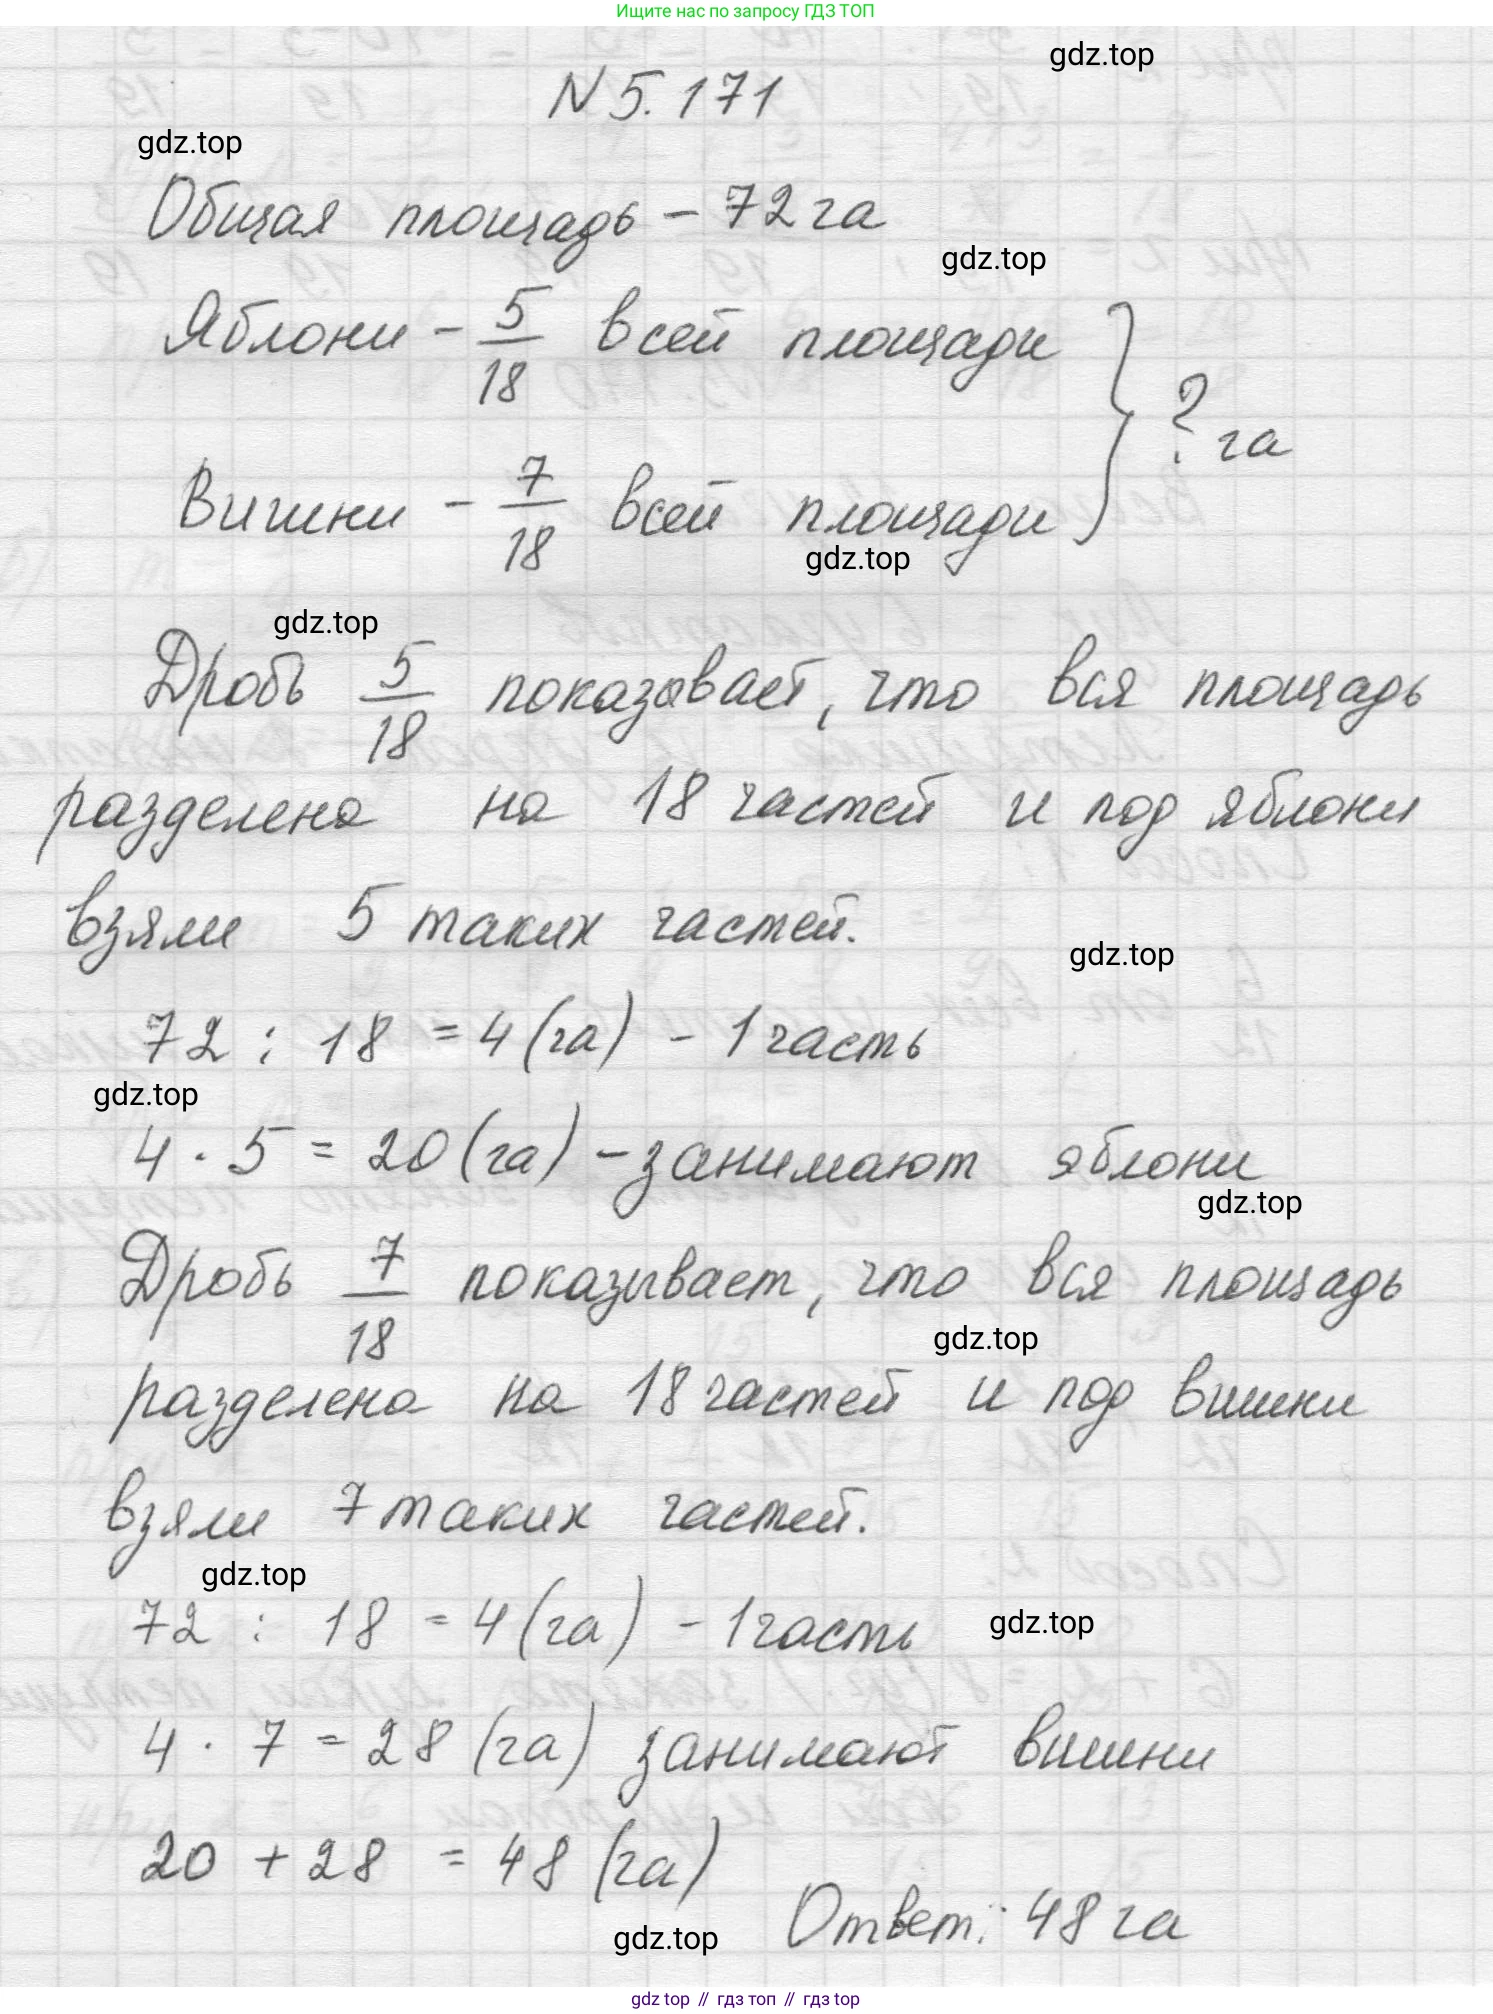 Ищите нас по запросу ГДЗ ТОП
gdz.top
N 5.171
gdz.top
Общая площадь – 72 га
gdz.top
Яблони – 5/18 всей площади
} ? га
Вишни – 7/18 всей площади
gdz.top
gdz.top
Дробь 5/18 показывает, что вся площадь
разделена на 18 частей и под яблони
взяли 5 таких частей.
gdz.top
72 : 18 = 4 (га) – 1 часть
gdz.top
4 · 5 = 20 (га) – занимают яблони
gdz.top
Дробь 7/18 показывает, что вся площадь
gdz.top
разделена на 18 частей и под вишни
взяли 7 таких частей.
gdz.top
72 : 18 = 4 (га) – 1 часть
gdz.top
4 · 7 = 28 (га) занимают вишни
20 + 28 = 48 (га)
Ответ: 48 га
gdz.top
gdz top // гдз топ // гдз top